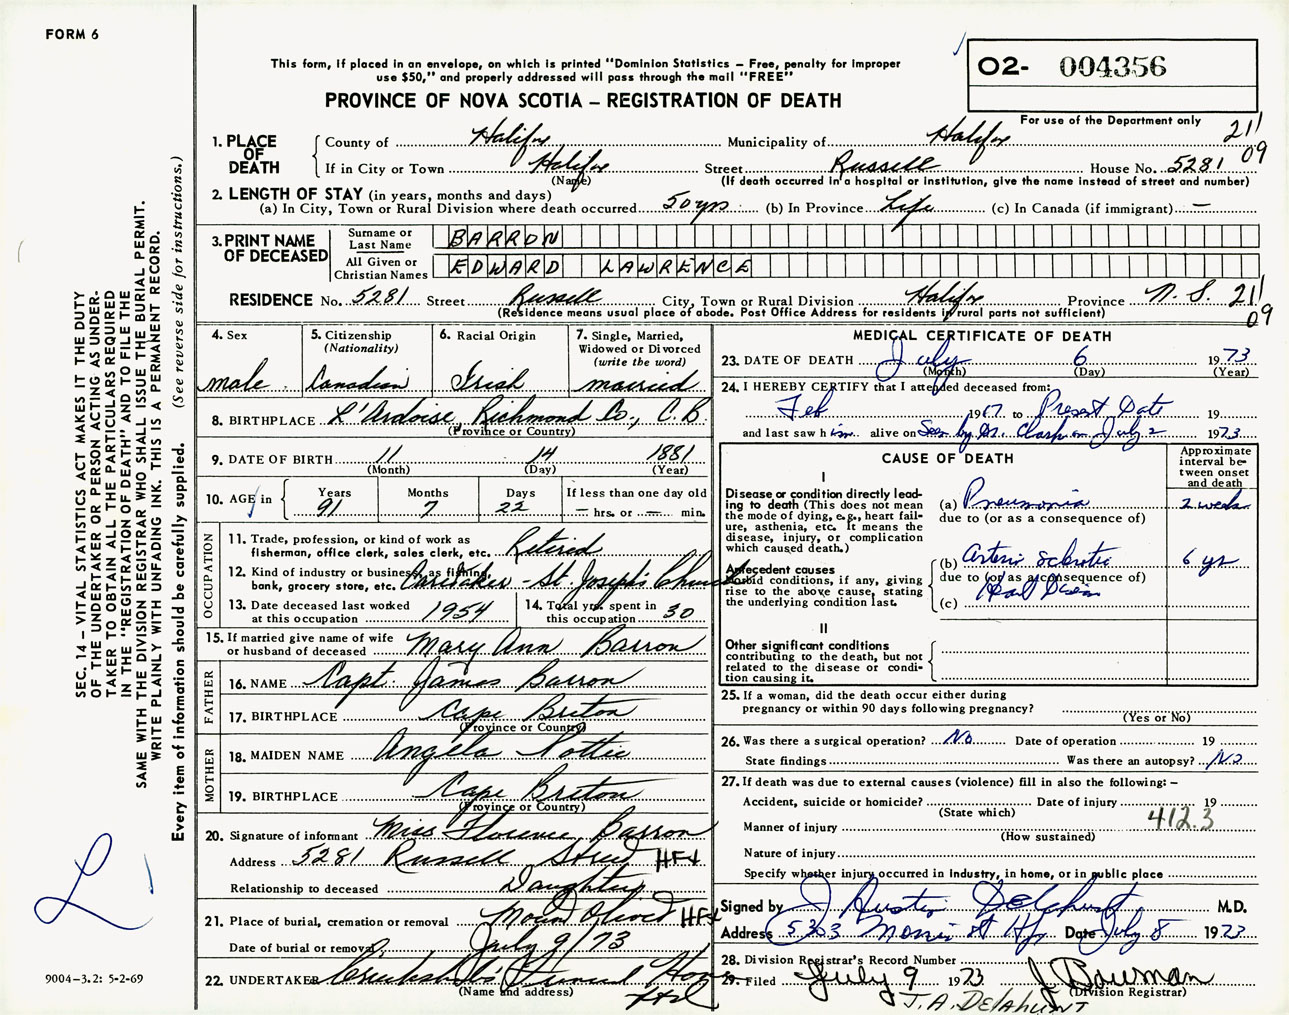 FORM 6
This form, if placed in an envelope, on which is printed "Dominion Statistics – Free, penalty for improper
use $50," and properly addressed will pass through the mail "FREE"
O2- 004356
PROVINCE OF NOVA SCOTIA – REGISTRATION OF DEATH
For use of the Department only
211
09
1. PLACE OF DEATH
County of Halifax Municipality of Halifax
If in City or Town Halifax Street Russell House No. 5281
(Name) (If death occurred in a hospital or institution, give the name instead of street and number)
2. LENGTH OF STAY (in years, months and days)
(a) In City, Town or Rural Division where death occurred 50 yrs. (b) In Province Life (c) In Canada (if immigrant) —
3. PRINT NAME OF DECEASED
Surname or Last Name BARRON
All Given or Christian Names EDWARD LAWRENCE
RESIDENCE No. 5281 Street Russell City, Town or Rural Division Halifax Province N.S. 211
09
(Residence means usual place of abode. Post Office Address for residents in rural parts not sufficient)
4. Sex
male
5. Citizenship
(Nationality)
Canadian
6. Racial Origin
Irish
7. Single, Married,
Widowed or Divorced
(write the word)
married
8. BIRTHPLACE L'Ardoise, Richmond Co., C.B
(Province or Country)
9. DATE OF BIRTH 11 14 1881
(Month) (Day) (Year)
10. AGE in
Years Months Days If less than one day old
91 7 22 — hrs. or — min.
OCCUPATION
11. Trade, profession, or kind of work as
fisherman, office clerk, sales clerk, etc. Retired
12. Kind of industry or business, as fishing,
bank, grocery store, etc. Caretaker - St. Joseph's Church
13. Date deceased last worked
at this occupation 1954
14. Total yrs. spent in
this occupation 30
15. If married give name of wife
or husband of deceased Mary Ann Barron
FATHER
16. NAME Capt. James Barron
17. BIRTHPLACE Cape Breton
(Province or Country)
MOTHER
18. MAIDEN NAME Angela Pottie
19. BIRTHPLACE Cape Breton
(Province or Country)
20. Signature of informant Miss Florence Barron
Address 5281 Russell Street HFX
Relationship to deceased Daughter
21. Place of burial, cremation or removal Mount Olivet HFX
Date of burial or removal July 9/73
22. UNDERTAKER Cruikshank's Funeral Home
(Name and address)
Hfx
MEDICAL CERTIFICATE OF DEATH
23. DATE OF DEATH July 6 1973
(Month) (Day) (Year)
24. I HEREBY CERTIFY that I attended deceased from:
Feb 1967 to Present Date 19
and last saw him alive on Seen by Dr. July 2 1973
CAUSE OF DEATH
Approximate
interval be-
tween onset
and death
I
Disease or condition directly lead-
ing to death (This does not mean
the mode of dying, e.g., heart fail-
ure, asthenia, etc. It means the
disease, injury, or complication
which caused death.)
(a) Pneumonia 2 weeks
due to (or as a consequence of)
Antecedent causes
Morbid conditions, if any, giving
rise to the above cause, stating
the underlying condition last.
(b) Arterio sclerotic 6 yr
due to (or as a consequence of)
Heart Disease
(c)
II
Other significant conditions
contributing to the death, but not
related to the disease or condi-
tion causing it.
25. If a woman, did the death occur either during
pregnancy or within 90 days following pregnancy?
(Yes or No)
26. Was there a surgical operation? No Date of operation 19
State findings Was there an autopsy? No
27. If death was due to external causes (violence) fill in also the following: –
Accident, suicide or homicide? Date of injury 19
(State which)
412.3
Manner of injury
(How sustained)
Nature of injury
Specify whether injury occurred in industry, in home, or in public place
Signed by J Austin Delahunt M.D.
Address 5303 Morris St Hfx Date July 8 1973
28. Division Registrar's Record Number
29. Filed July 9 1973 J Bowman
(Division Registrar)
J.A. DELAHUNT
SEC. 14 – VITAL STATISTICS ACT MAKES IT THE DUTY
OF THE UNDERTAKER OR PERSON ACTING AS UNDER-
TAKER TO OBTAIN ALL THE PARTICULARS REQUIRED
IN THE "REGISTRATION OF DEATH" AND TO FILE THE
SAME WITH THE DIVISION REGISTRAR WHO SHALL ISSUE THE BURIAL PERMIT.
WRITE PLAINLY WITH UNFADING INK. THIS IS A PERMANENT RECORD.
Every item of information should be carefully supplied. (See reverse side for instructions.)
L
9004–3.2: 5-2-69